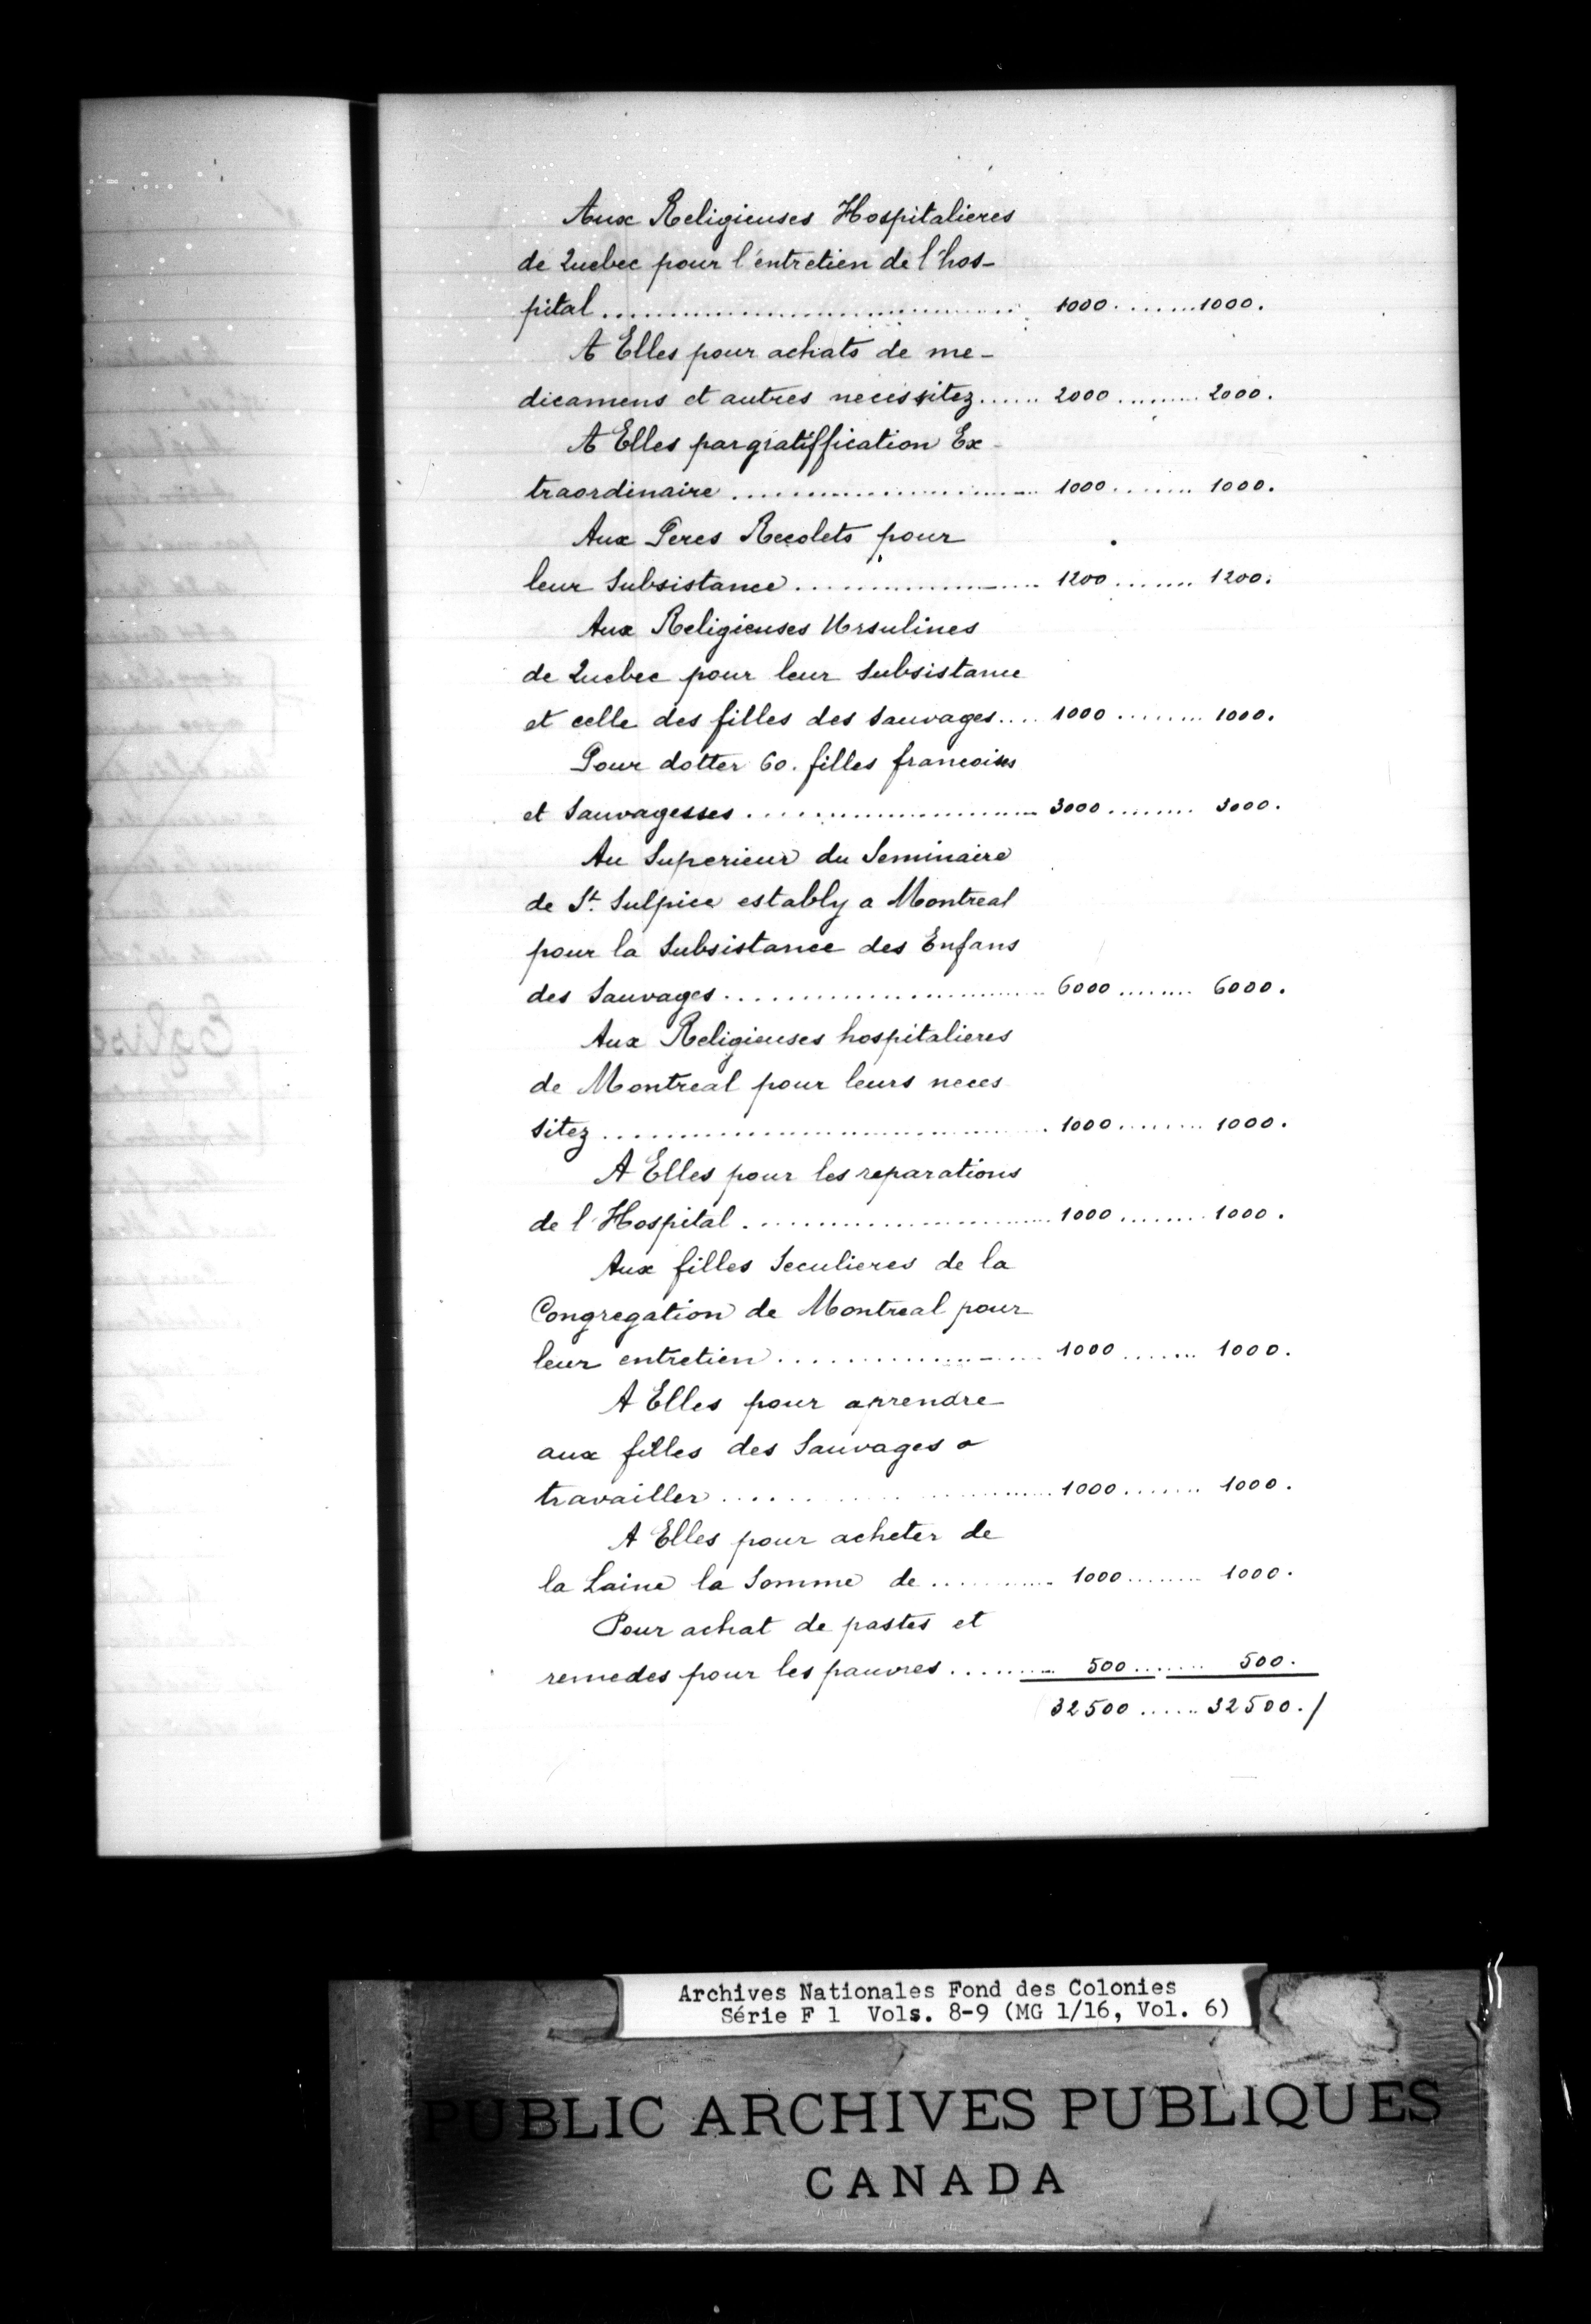 Aux Religieuses Hospitalieres
de Quebec pour l'entretien de l'hos-
pital.............................. 1000........1000.
A Elles pour achats de me-
dicamens et autres necessitez...... 2000.........2000.
A Elles par gratiffication Ex-
traordinaire....................... 1000........ 1000.
Aux Peres Recolets pour
leur Subsistance................... 1200........ 1200.
Aux Religieuses Ursulines
de Quebec pour leur Subsistance
et celle des filles des Sauvages.... 1000......... 1000.
Pour dotter 60. filles francoises
et Sauvagesses..................... 3000......... 3000.
Au Superieur du Seminaire
de St. Sulpice estably a Montreal
pour la Subsistance des Enfans
des Sauvages....................... 6000........ 6000.
Aux Religieuses hospitalieres
de Montreal pour leurs neces
sitez.............................. 1000......... 1000.
A Elles pour les reparations
de l'Hospital...................... 1000......... 1000.
Aux filles Seculieres de la
Congregation de Montreal pour
leur entretien..................... 1000........ 1000.
A Elles pour aprendre
aux filles des Sauvages a
travailler......................... 1000........ 1000.
A Elles pour acheter de
la Laine la Somme de............ 1000........ 1000.
Pour achat de pastes et
remedes pour les pauvres.......... 500....... 500.
32500......32500./
Eglise
Archives Nationales Fond des Colonies
Série F 1 Vols. 8-9 (MG 1/16, Vol. 6)
PUBLIC ARCHIVES PUBLIQUES
CANADA